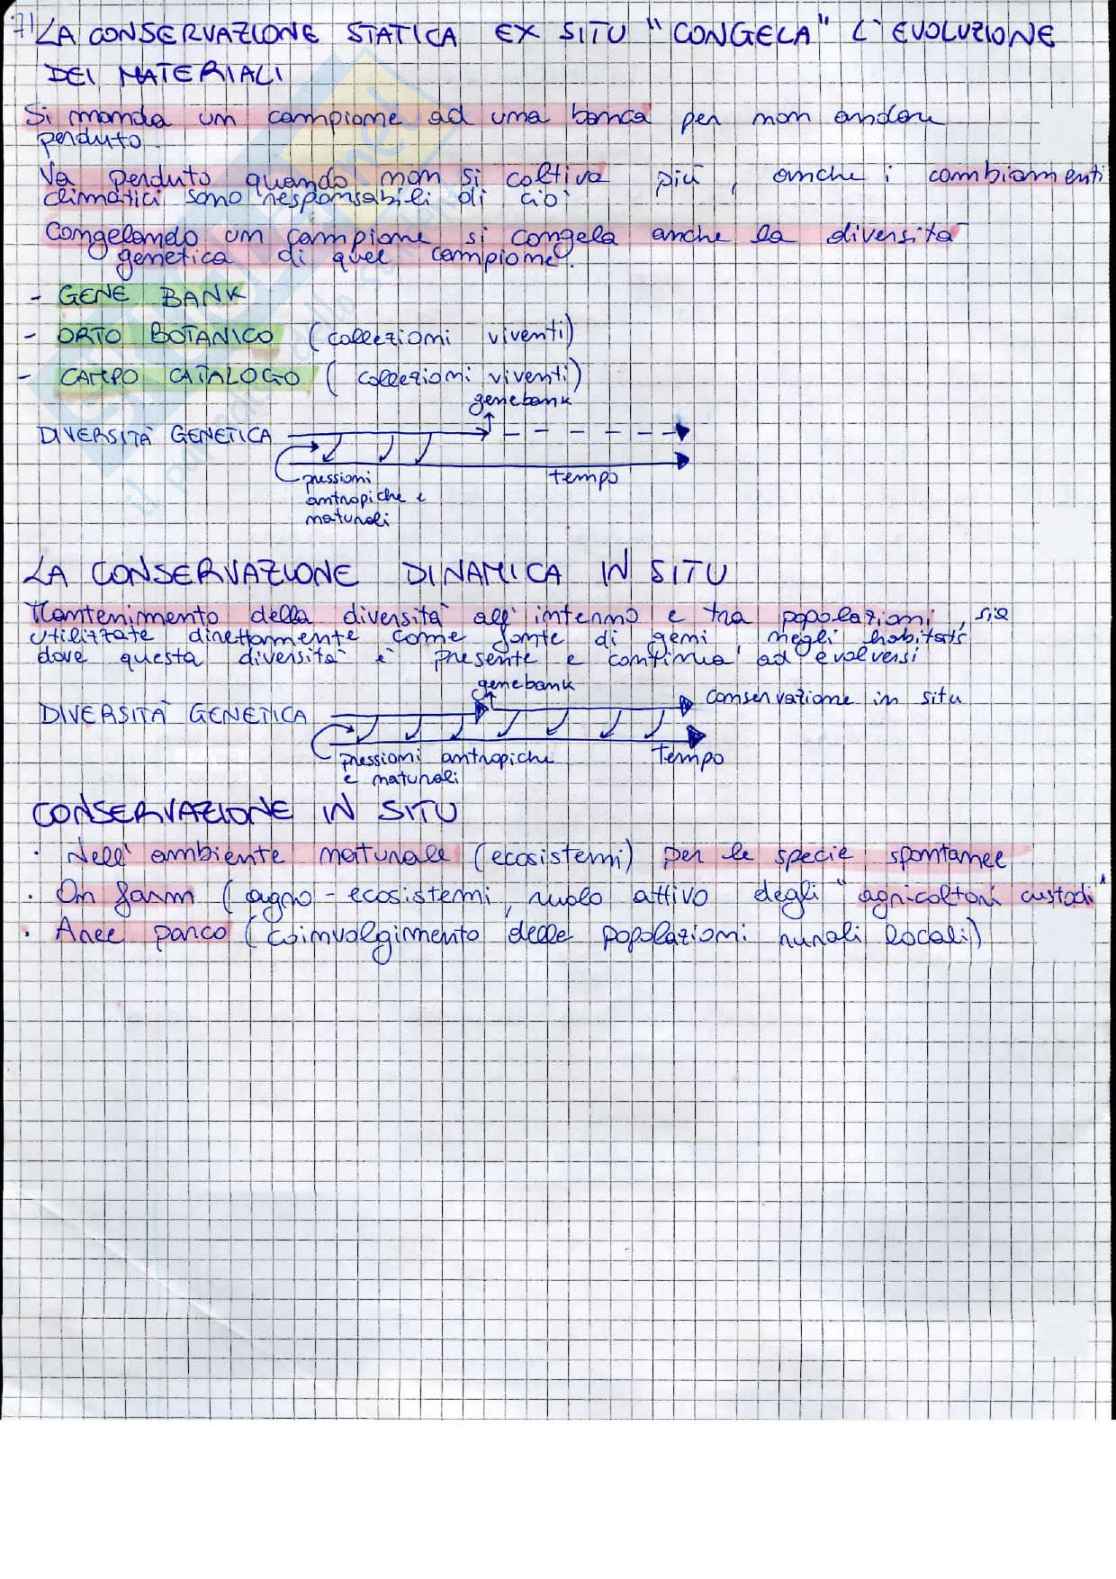 71
LA CONSERVAZIONE STATICA EX SITU "CONGELA" L'EVOLUZIONE
DEI MATERIALI
Si manda un campione ad una banca per non andare
perduto.
Va perduto quando non si coltiva più, anche i cambiamenti
climatici sono responsabili di ciò
Congelando un campione si congela anche la diversità
genetica di quel campione.
- GENE BANK
- ORTO BOTANICO (collezioni viventi)
- CAMPO CATALOGO (collezioni viventi)
genebank
DIVERSITÀ GENETICA
pressioni
tempo
antropiche e
naturali
LA CONSERVAZIONE DINAMICA IN SITU
Mantenimento della diversità all'interno e tra popolazioni, sia
utilizzate direttamente come fonte di geni negli habitats
dove questa diversità è presente e continua ad evolversi
genebank
conservazione in situ
DIVERSITÀ GENETICA
pressioni antropiche
Tempo
e naturali
CONSERVAZIONE IN SITU
· Nell'ambiente naturale (ecosistemi) per le specie spontanee
· On farm (agro-ecosistemi, ruolo attivo degli "agricoltori custodi"
· Aree parco (coinvolgimento delle popolazioni rurali locali)